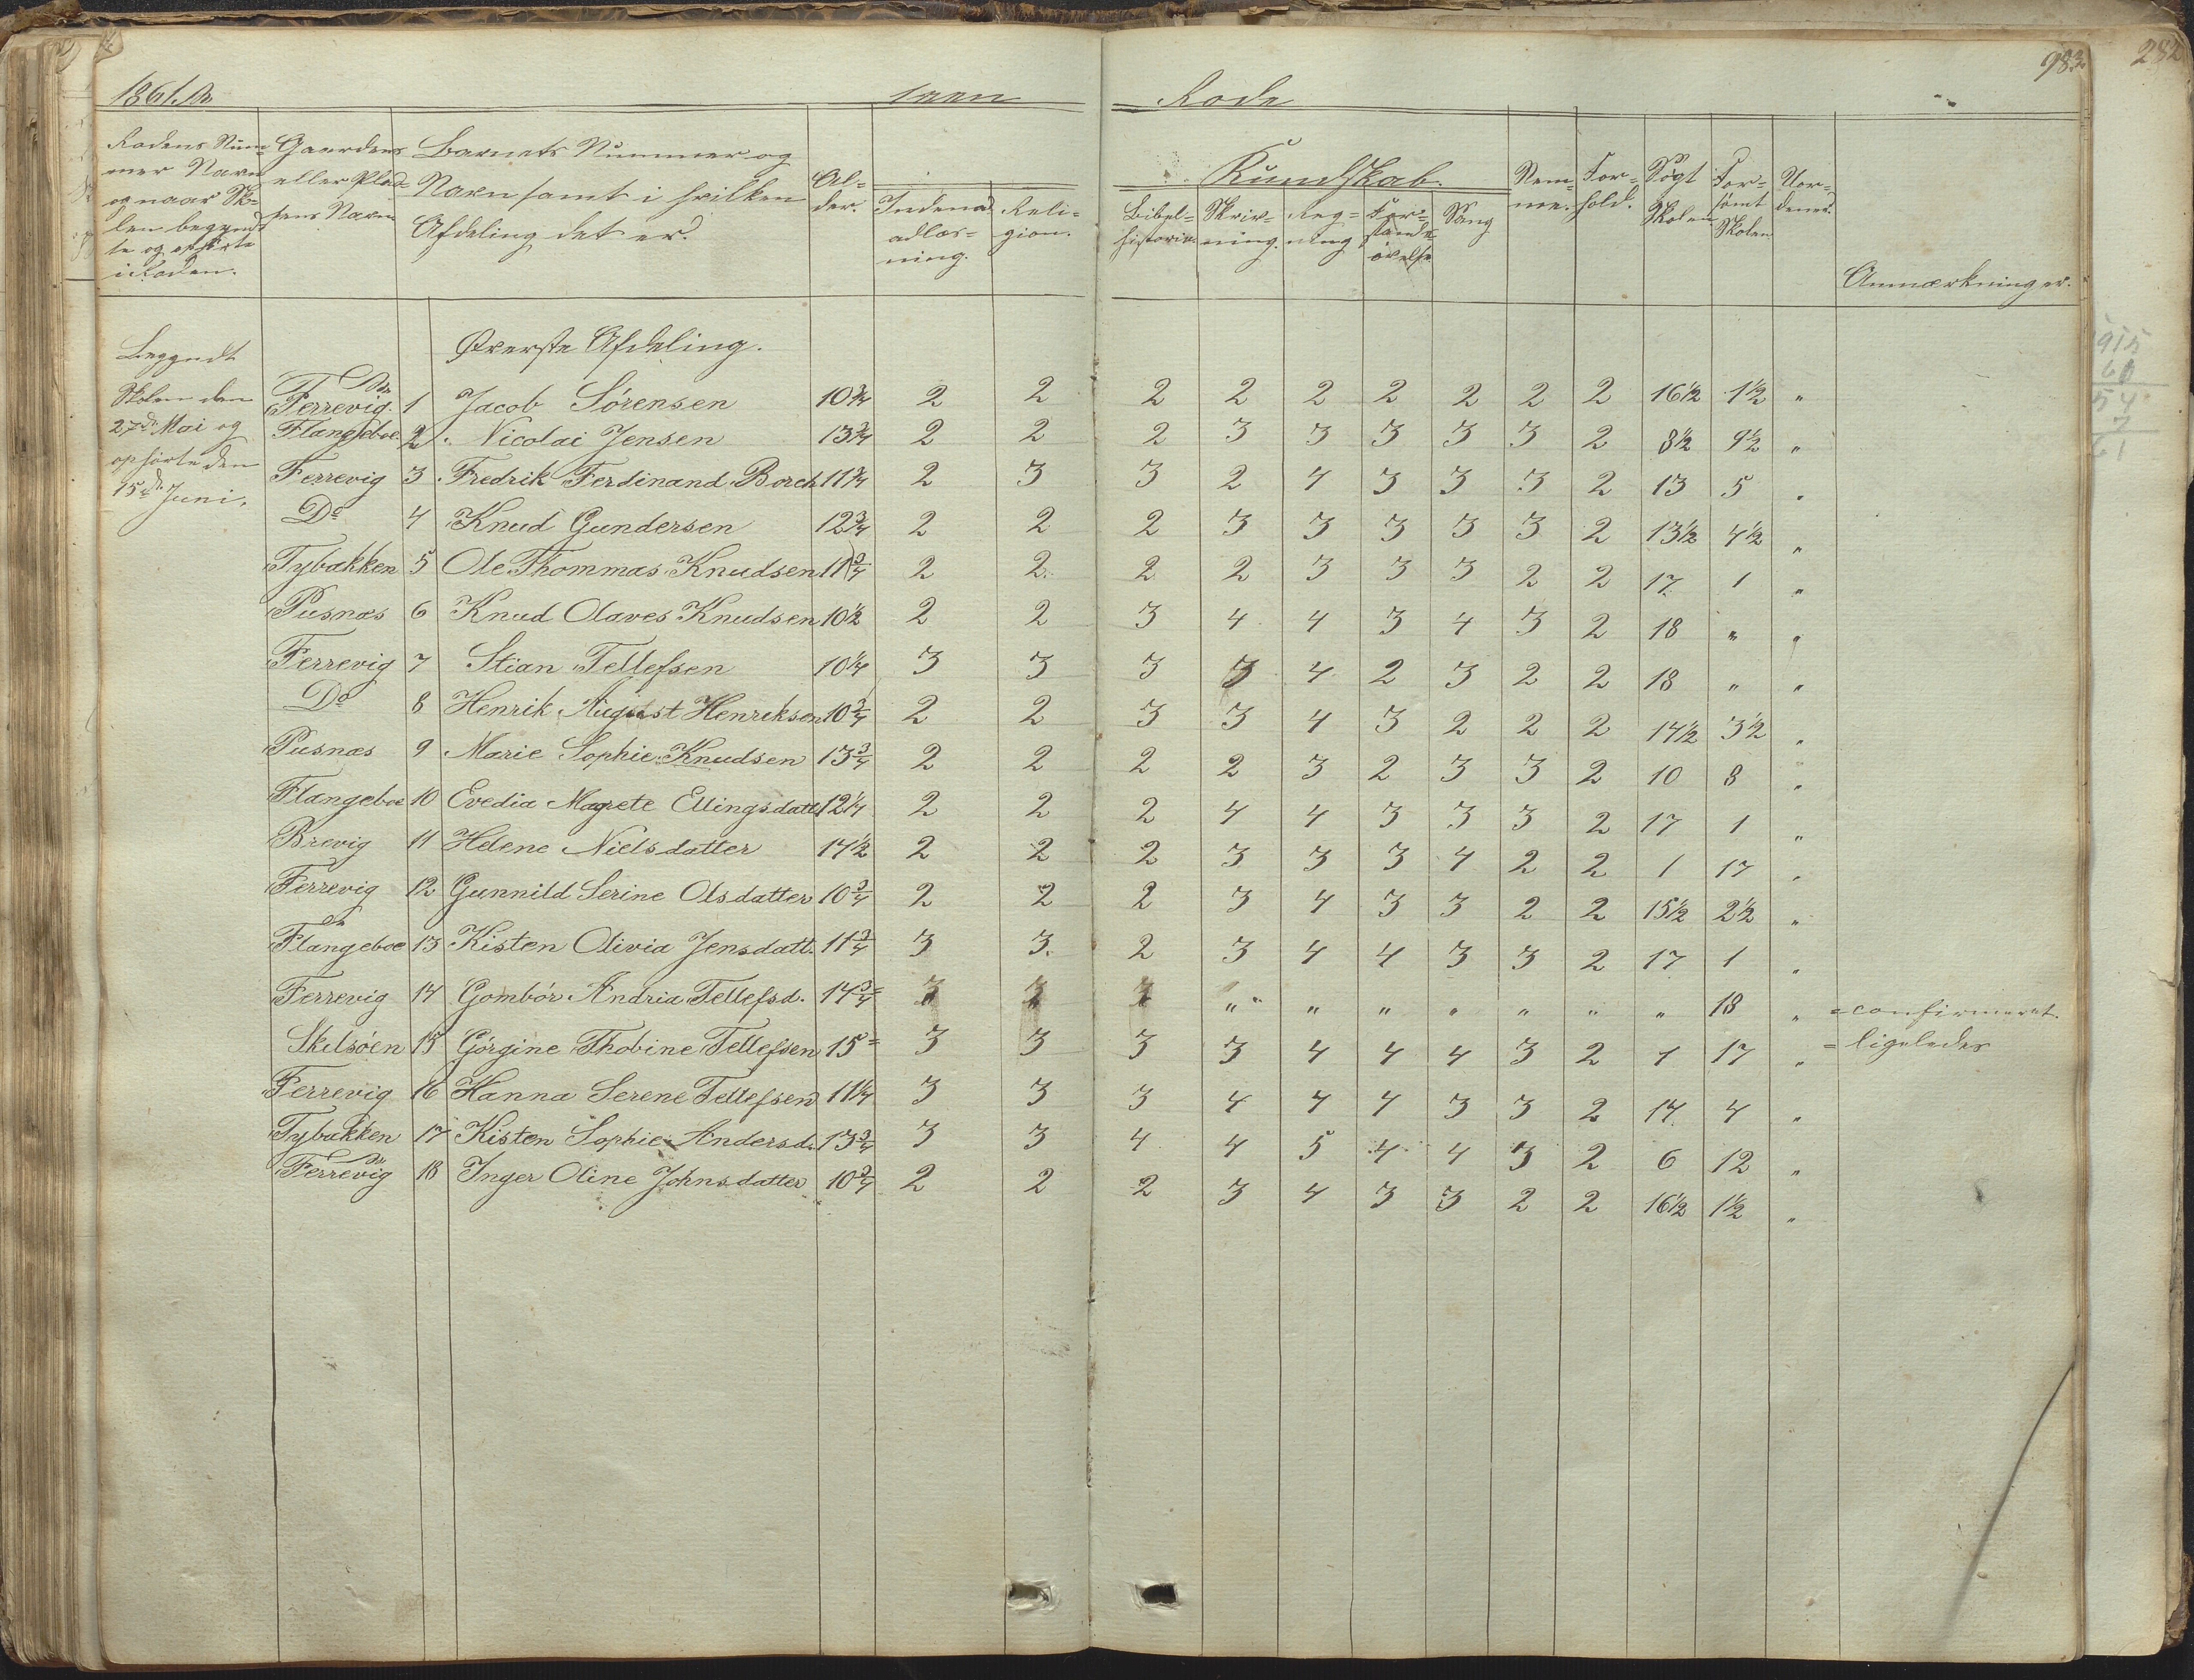 282
983
1861.
Rode
Rodens Num=
mer Navn
og naar Sko=
len begynd
te og ophørte
i Roden.
Gaardens
eller Plad=
sens Navn
Barnets Nummer og
Navn samt i hvilken
Afdeling det er.
Al=
der.
Kundskab.
Indenad
adlæs=
ning.
Reli=
gion.
Bibel=
historie
Skriv=
ning.
Reg=
ning
For=
stands
øvelse
Sang
Nem=
me.
For=
hold.
Søgt
Skolen
For=
sömt
Skolen
Uor=
dener.
Anmærkninger.
Øverste Afdeling.
Begyndt
Skolen den
27de Mai og
ophörte den
15de Juni.
Ferrevig 1 Jacob Sørensen 10 3/4 2 2 2 2 2 2 2 2 2 16 1/2 1 1/2 "
Flangeboe 2 Nicolai Jensen 13 3/4 2 2 2 3 3 3 3 3 2 8 1/2 9 1/2 "
Ferrevig 3 Fredrik Ferdinand Borch 11 3/4 2 3 3 2 4 3 3 3 2 13 5 "
Do 4 Knud Gundersen 12 3/4 2 2 2 3 3 3 3 3 2 13 1/2 4 1/2 "
Tybakken 5 Ole Thommas Knudsen 11 3/4 2 2 2 2 3 3 3 2 2 17 1 "
Pusnæs 6 Knud Olaves Knudsen 10 1/2 2 2 3 4 4 3 4 3 2 18 " "
Ferrevig 7 Stian Tellefsen 10 1/4 3 3 3 3 4 2 3 2 2 18 " "
Do 8 Henrik August Henriksen 10 3/4 2 2 3 3 4 3 2 2 2 14 1/2 3 1/2 "
Pusnæs 9 Marie Sophie Knudsen 13 3/4 2 2 2 2 3 2 3 3 2 10 8 "
Flangeboe 10 Evedia Magrete Ellingsdatt 12 1/4 2 2 2 4 4 3 3 3 2 17 1 "
Brevig 11 Helene Nielsdatter 14 1/2 2 2 2 3 3 3 4 2 2 1 17 "
Ferrevig 12 Gunnild Serine Olsdatter 10 3/4 2 2 2 3 4 3 3 2 2 15 1/2 2 1/2 "
Flangeboe 13 Kisten Olivia Jensdatt. 11 3/4 3 3. 2 3 4 4 3 3 2 17 1 "
Ferrevig 14 Gombör Andria Tellefsd. 14 3/4 = " " " " " " " " " " 18 " = confirmeret.
Skilsöen 15 Görgine Thobine Tellefsen 15 = 3 3 3 3 4 4 4 3 2 1 17 " = ligeledes
Ferrevig 16 Hanna Serene Tellefsen 11 1/4 3 3 3 4 4 4 3 3 2 14 4 "
Tybakken 17 Kisten Sophie Andersd. 13 3/4 3 3 4 4 5 4 4 3 2 6 12 "
Ferrevig 18 Inger Oline Johnsdatter 10 3/4 2 2 2 3 4 3 3 2 2 16 1/2 1 1/2 "